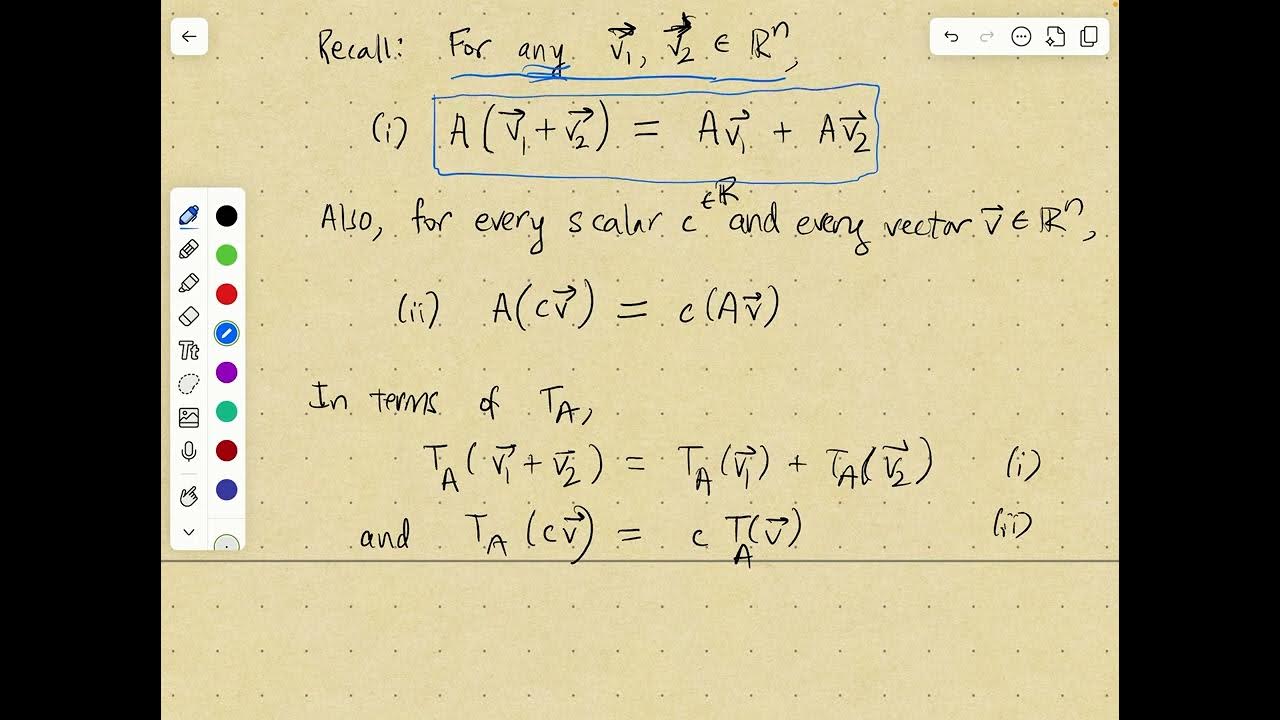 Recall: For any v⃗₁, v⃗₂ ∈ ℝⁿ,
(i) A(v⃗₁ + v⃗₂) = Av⃗₁ + Av⃗₂
Also, for every scalar c ∈ ℝ and every vector v⃗ ∈ ℝⁿ,
(ii) A(cv⃗) = c(Av⃗)
In terms of T_A,
T_A(v⃗₁ + v⃗₂) = T_A(v⃗₁) + T_A(v⃗₂) (i)
and T_A(cv⃗) = c T_A(v⃗) (ii)
Tt